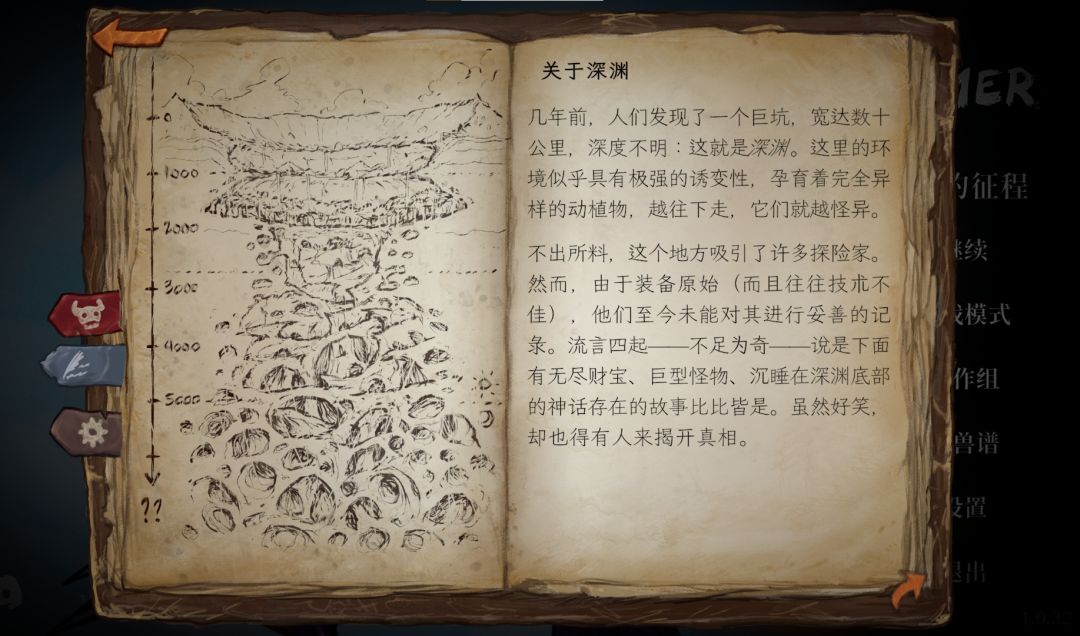 关于深渊
几年前，人们发现了一个巨坑，宽达数十
公里，深度不明：这就是深渊。这里的环
境似乎具有极强的诱变性，孕育着完全异
样的动植物，越往下走，它们就越怪异。
不出所料，这个地方吸引了许多探险家。
然而，由于装备原始（而且往往技术不
佳），他们至今未能对其进行妥善的记
录。流言四起——不足为奇——说是下面
有无尽财宝、巨型怪物、沉睡在深渊底部
的神话存在的故事比比皆是。虽然好笑，
却也得有人来揭开真相。
0
1000
2000
3000
4000
5000
??
MER
的征程
继续
戏模式
作组
兽谱
设置
退出
1.0.32